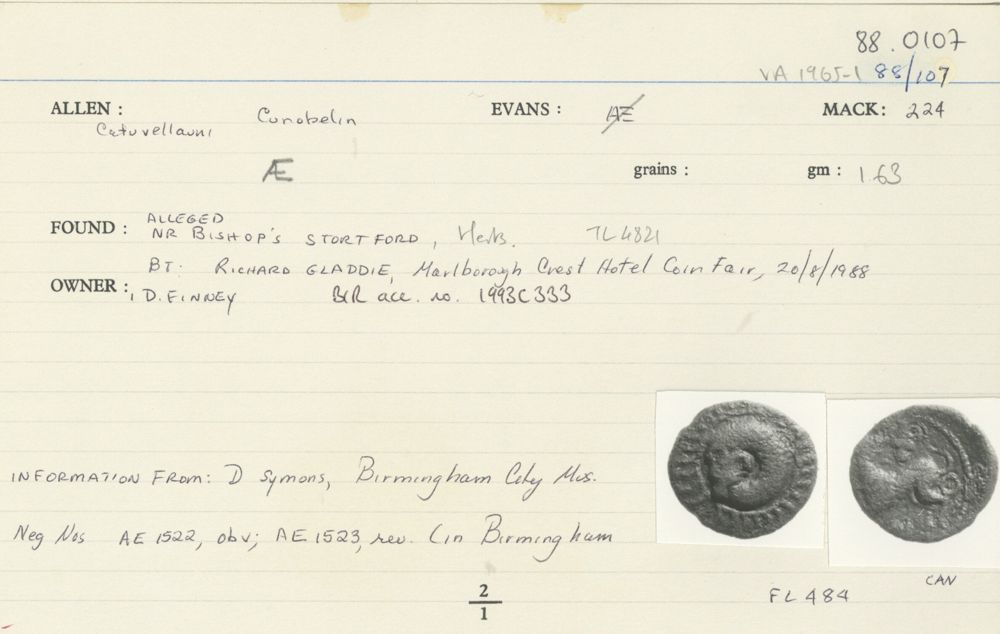 88.0107
VA 1965-1 88/107
ALLEN : Cunobelin EVANS : Æ MACK: 224
Catuvellauni
Æ grains : gm : 1.63
ALLEGED
FOUND : NR BISHOP'S STORTFORD, Herts. TL 4821
BT: RICHARD GLADDIE, Marlborough Crest Hotel Coin Fair, 20/8/1988
OWNER : D. FINNEY BIR acc. no. 1993C333
INFORMATION FROM: D Symons, Birmingham City Mus.
Neg Nos AE 1522, obv; AE 1523, rev. (in Birmingham
2
1
FL 484
CAN